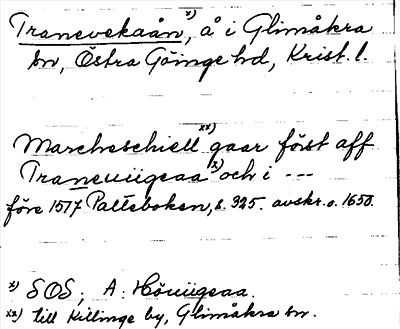 Tranevekaån x), å i Glimåkra
sn, Östra Göinge hd, Krist. l.
Marcheschiell xx) gaar först aff
Traneuiigeaa x) och i ---
före 1517 Palteboken, s. 925. avskr. o. 1650.
x) SOS; A: Höuiigeaa.
xx) till Killinge by, Glimåkra sn.